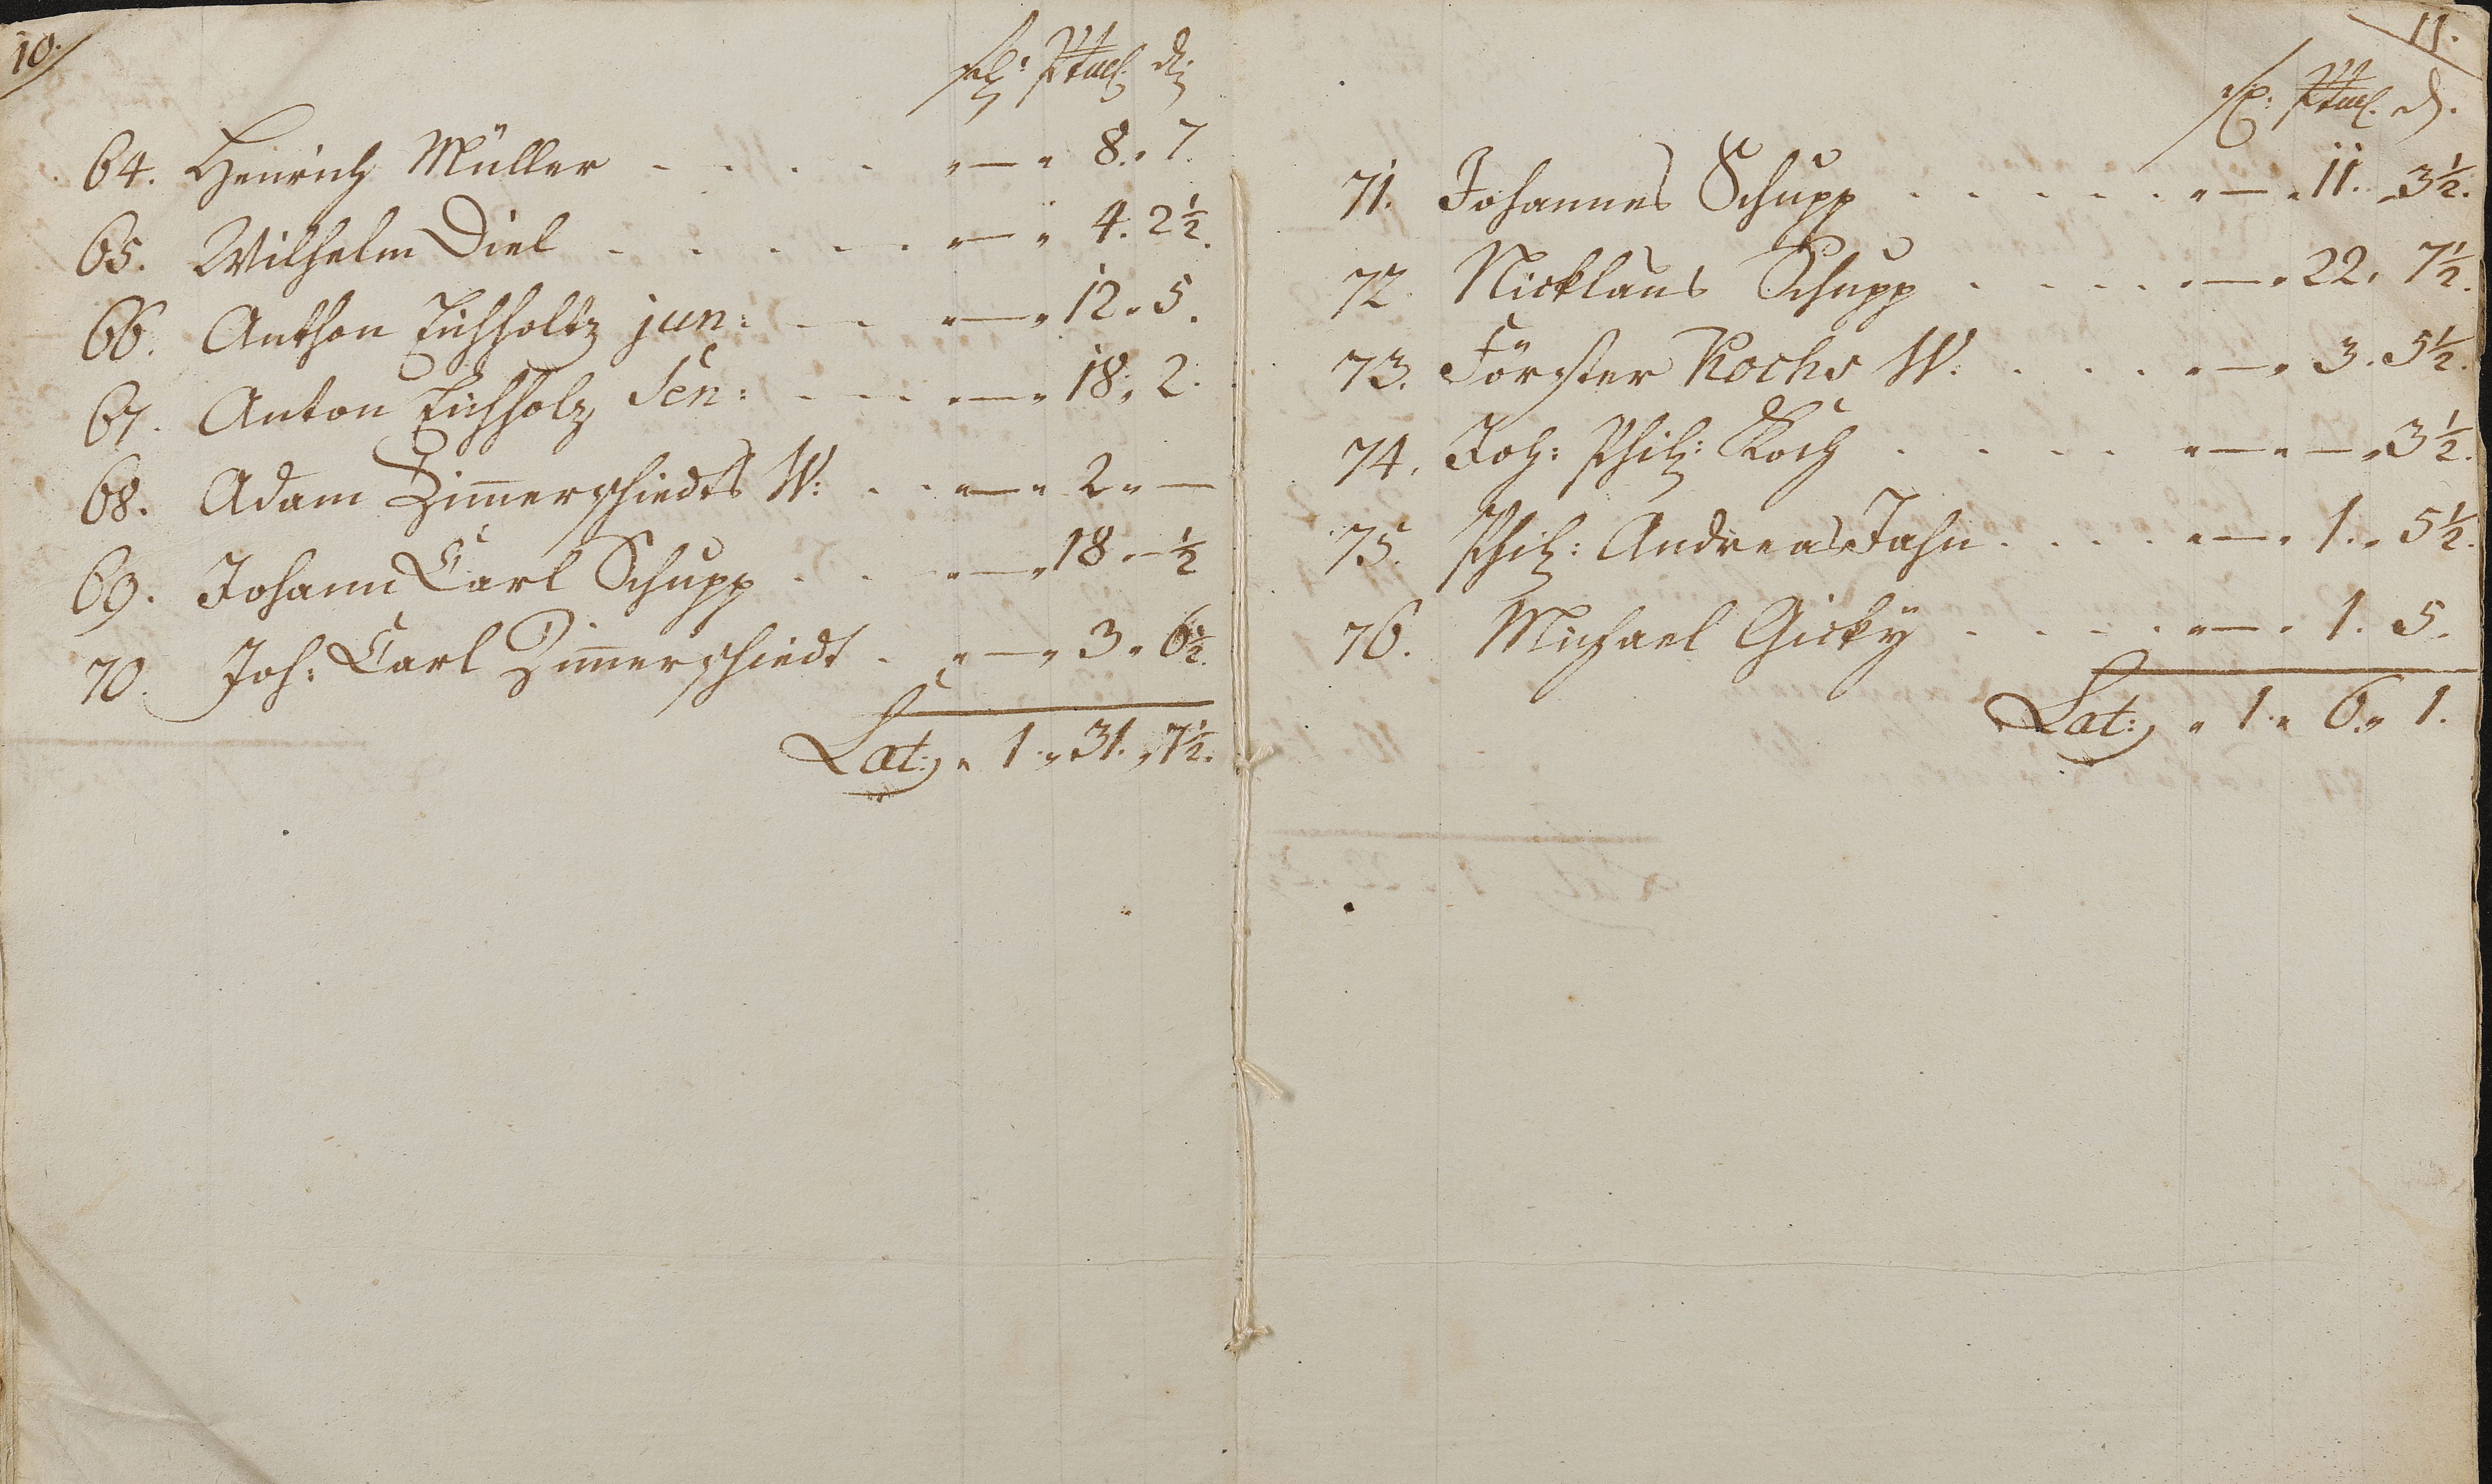 10.
64. Henrich Müller . . . . „ — „ 8. „ 7.
65. Wilhelm Diel . . . . . „ — „ 4. 2½.
66. Anthon Eichholtz jun: . . „ — „ 12. „ 5.
67. Anton Eichholz Sen: . . . „ — „ 18. „ 2.
68. Adam Zim̄erschiedts W: . . „ — „ 2 „ —
69. Johann Carl Schupp . . „ — „ 18 „ — ½
70. Joh: Carl Zim̄erschiedt . „ — „ 3 „ 6½.
Lat: „ 1. „ 31. „ 7½.
11.
71. Johannes Schupp . . . . . „ — „ 11. „ 3½.
72. Nicklaus Schupp . . . . „ — „ 22. 7½.
73. Förster Kochs W. . . . . „ — „ 3. 5½.
74. Joh: Phil: Koch . . . . „ — „ — „ 3½.
75. Phil: Andreas Jahn . . . . „ — „ 1. „ 5½.
76. Michael Gicky . . . . „ — „ 1. 5.
Lat: „ 1. „ 6. „ 1.